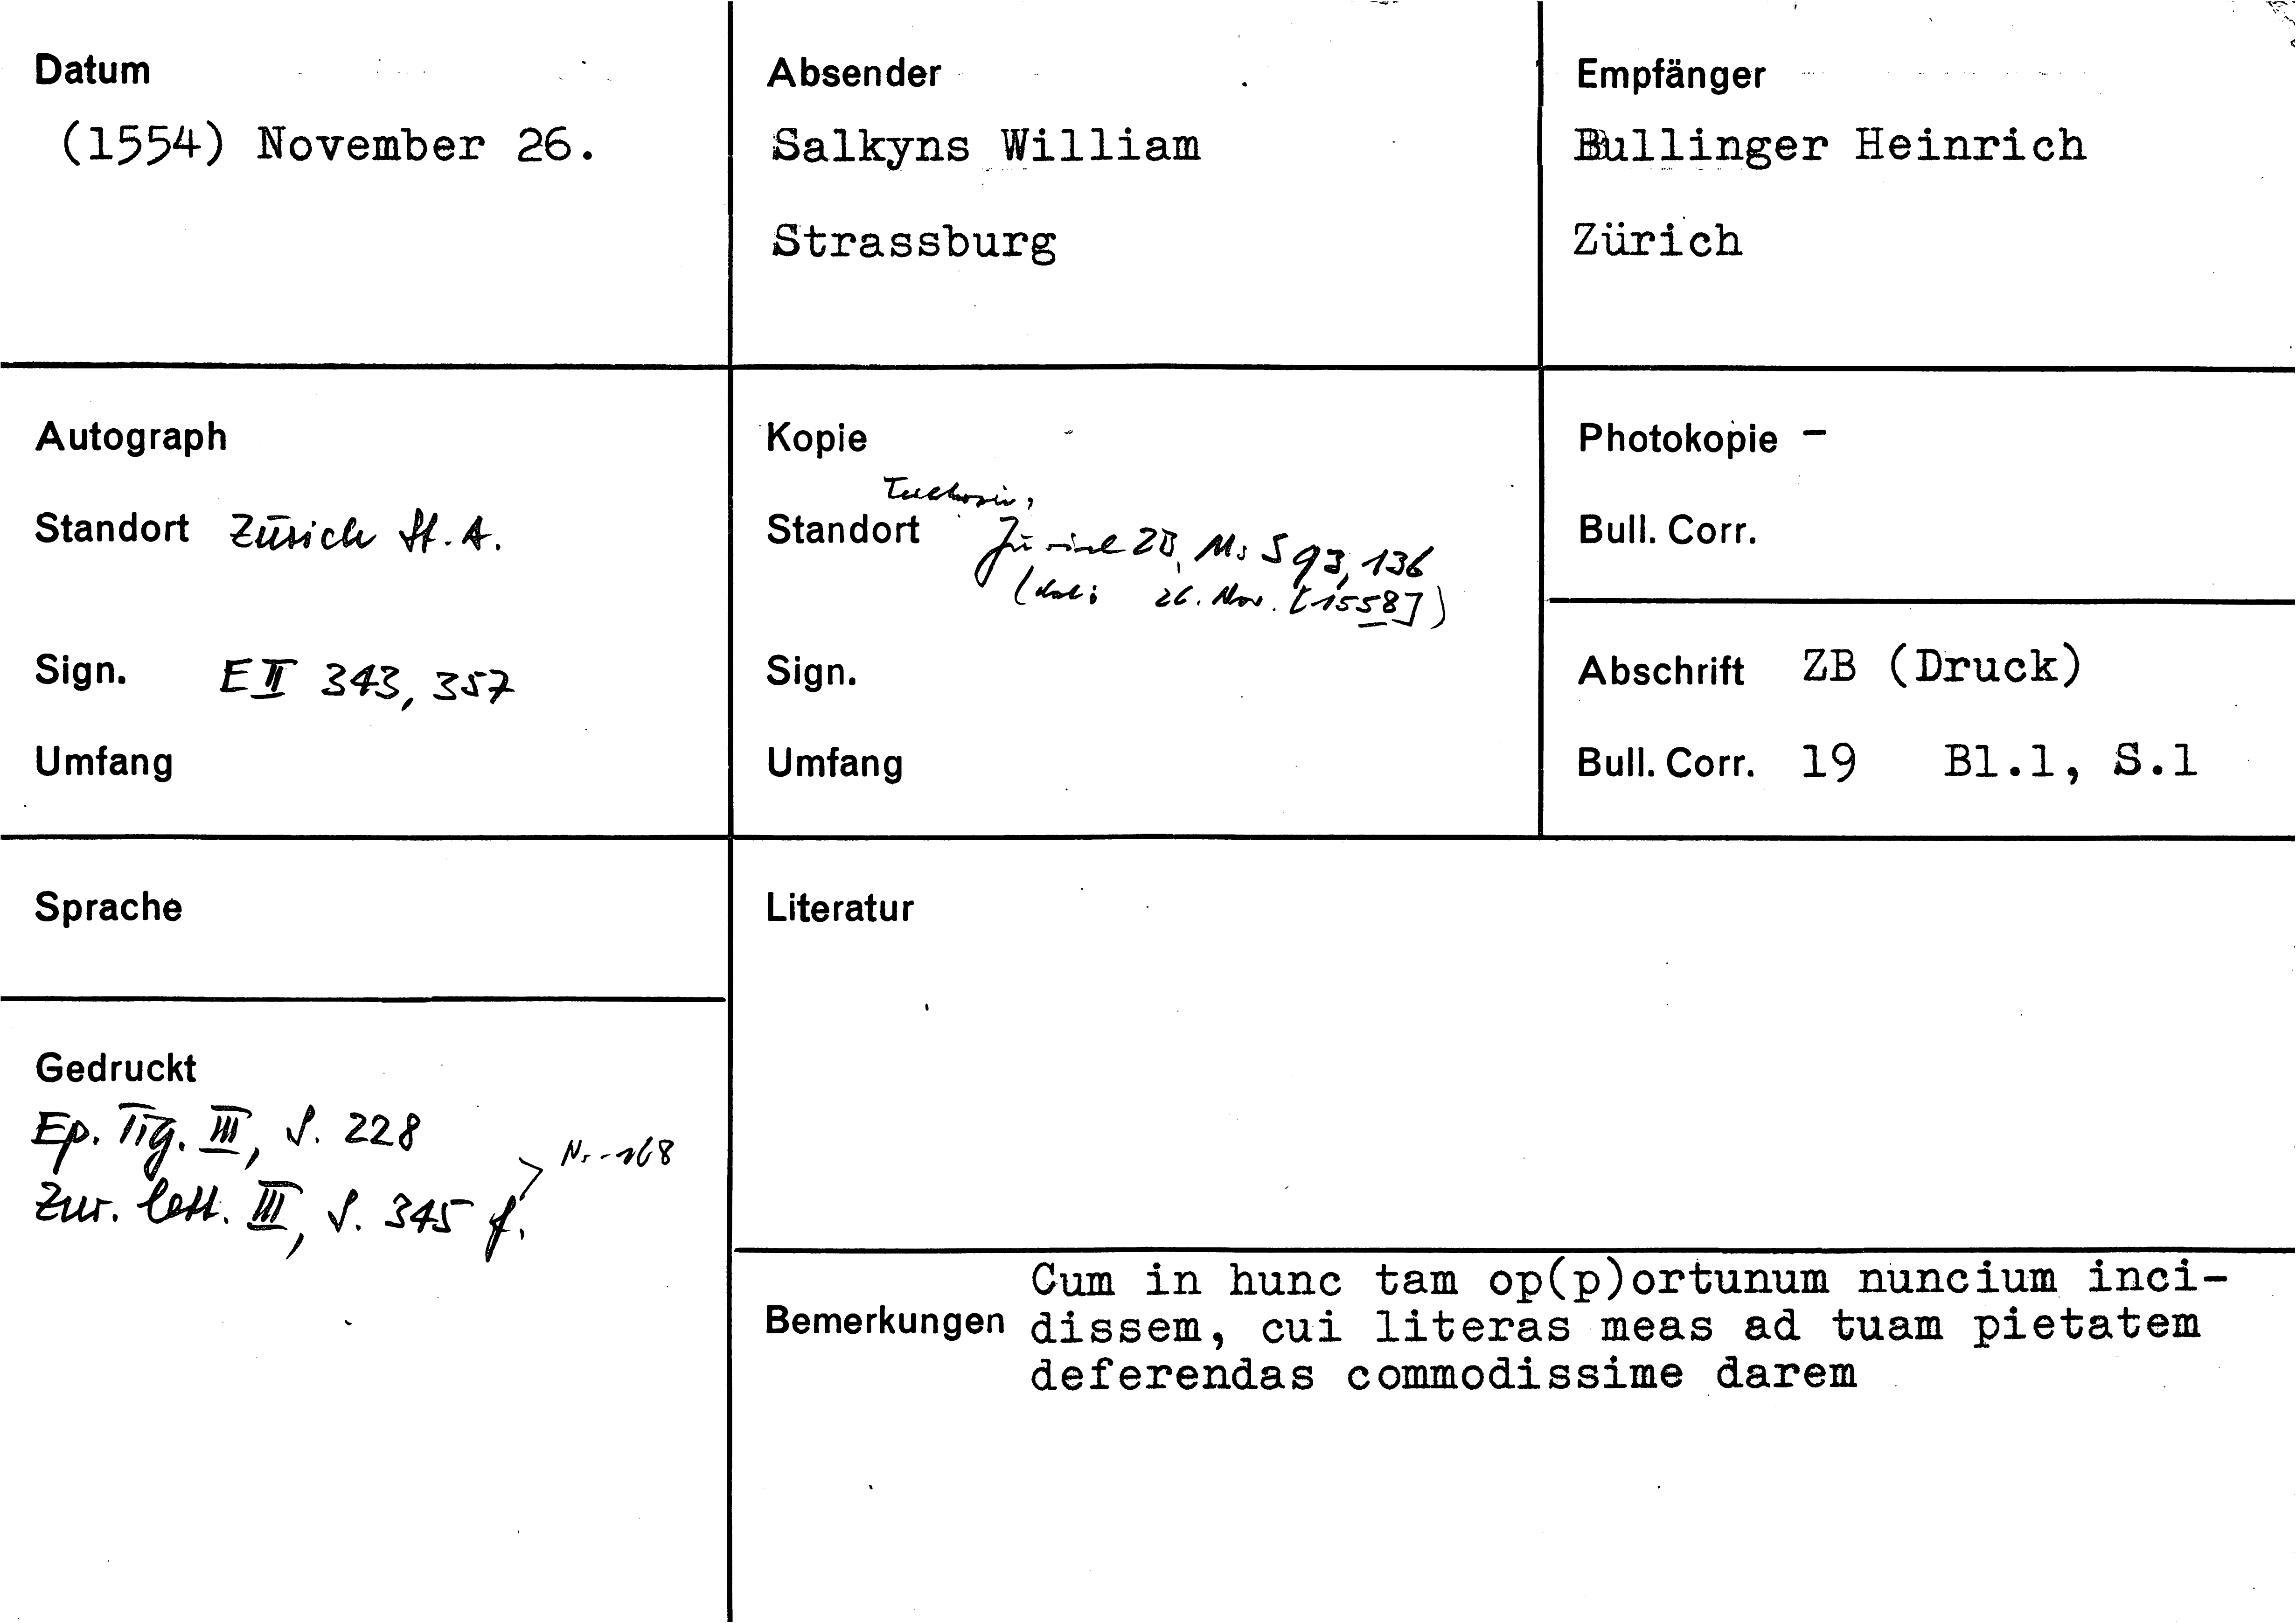 Datum
(1554) November 26.
Absender
Salkyns William
Strassburg
Empfänger
Bullinger Heinrich
Zürich
Autograph
Standort Zürich St. A.
Sign. E II 343, 357
Umfang
Kopie
Standort Zürich ZB, Ms S 93, 136
(dat: 26. Nov. [1558])
Sign.
Umfang
Photokopie -
Bull. Corr.
Abschrift ZB (Druck)
Bull. Corr. 19 Bl.1, S.1
Sprache
Gedruckt
Ep. Tig. III, S. 228
Zur. lett. III, S. 345 f.
Nr. 168
Literatur
Bemerkungen
Cum in hunc tam op(p)ortunum nuncium inci-
dissem, cui literas meas ad tuam pietatem
deferendas commodissime darem